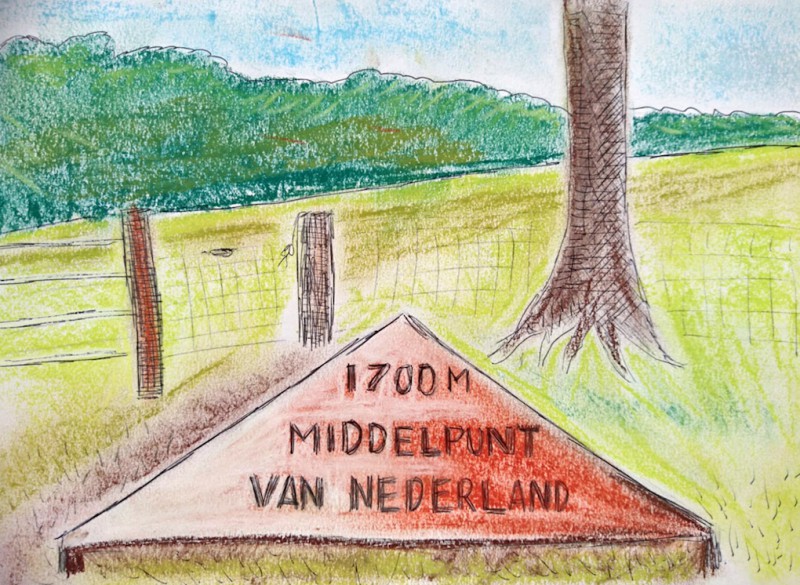 1700M
MIDDELPUNT
VAN NEDERLAND